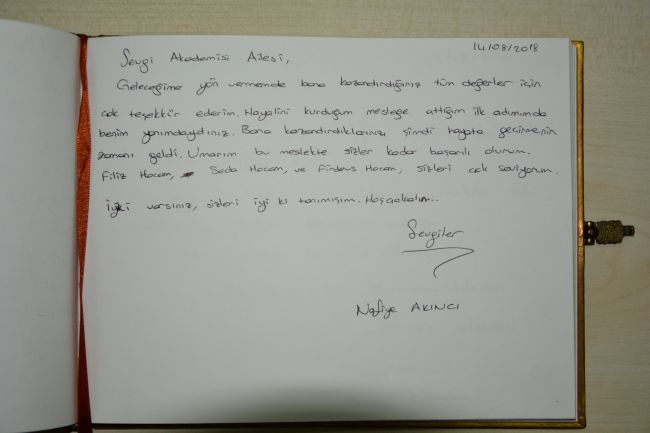 14/08/2018
Sevgi Akademisi Ailesi,
Geleceğime yön vermemde bana kazandırdığınız tüm değerler için
çok teşekkür ederim. Hayalini kurduğum mesleğe attığım ilk adımımda
benim yanımdaydınız. Bana kazandırdıklarınızı şimdi hayata geçirmenin
zamanı geldi. Umarım bu meslekte sizler kadar başarılı olurum.
Filiz Hocam, Seda Hocam, ve Firdevs Hocam, sizleri çok seviyorum.
İyki varsınız, sizleri iyi ki tanımışım. Hoşçakalın...
Sevgiler
Nafiye AKINCI